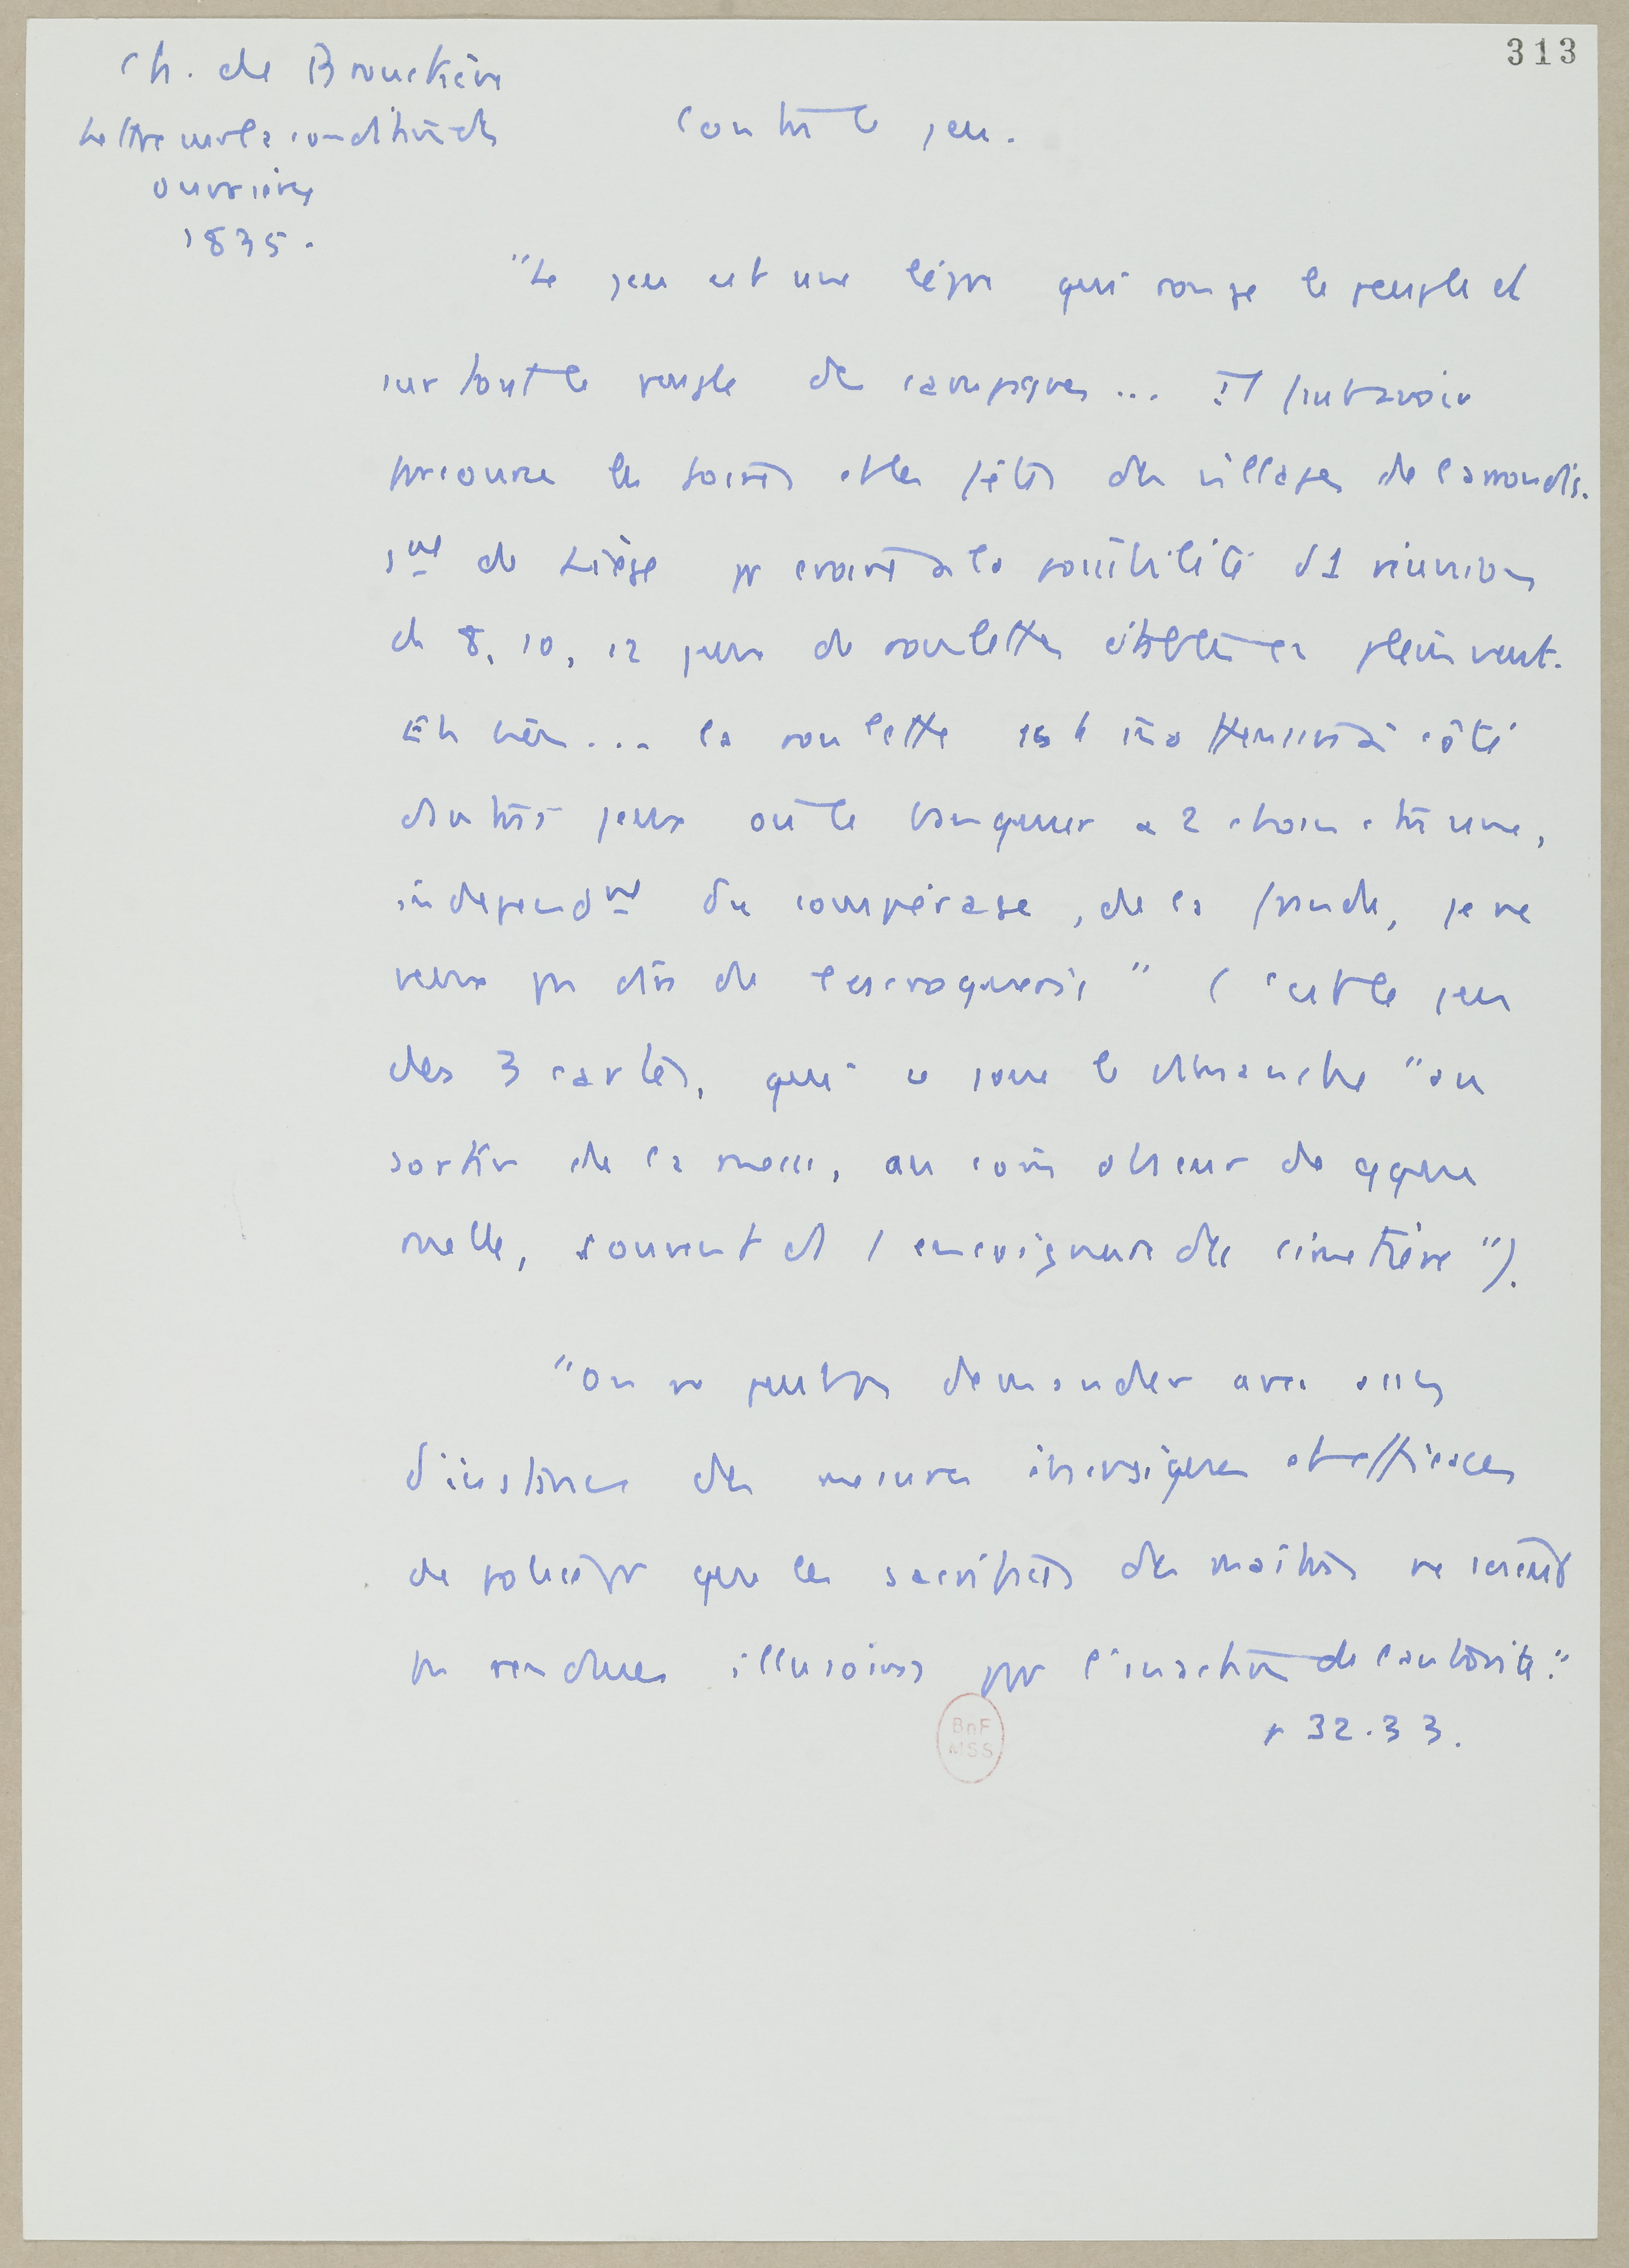 313
Ch. de Brouckère
Lettre sur la condition des
ouvriers
1835.
Contre le jeu.
"Le jeu est une lèpre qui ronge le peuple et
surtout le peuple des campagnes... Il faut avoir
parcouru les foires et les fêtes des villages de l'arrondis.
smt de Liège pr croire à la possibilité d'1 réunion
de 8, 10, 12 jeux de roulettes établies en plein vent.
Eh bien... la roulette est inoffensive à côté
d'autres jeux où le banquier a 2 chances contre une,
independmt du compérage, de la fraude, je ne
veux pas dire de l'escroquerie" (c'est le jeu
des 3 cartes, qui se joue le dimanche "au
sortir de la messe, au coin obscur de qque
ruelle, souvent ds l'encoignure du cimetière").
"On ne peut pas demander avec assez
d'instance des mesures énergiques et efficaces
de police pr que les sacrifices des maîtres ne soient
pas rendues illusoires par l'inaction de l'autorité."
p 32.33.
BnF
MSS